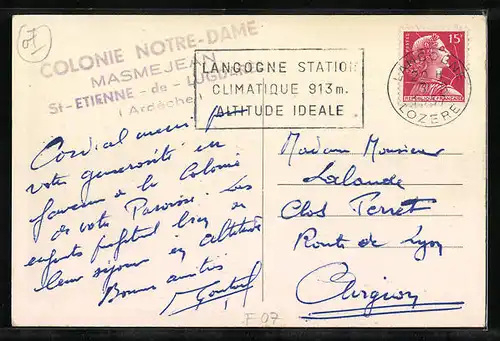 07
COLONIE NOTRE-DAME
MASMEJEAN
St-ETIENNE - de - LUGDARÈS
(Ardèche)
LANGOGNE STATION
CLIMATIQUE 913m.
ALTITUDE IDEALE
15F
LOZERE
Cordial merci pour
votre générosité en
faveur de la Colonie
de votre Paroisse. Les
enfants profitent bien de
leur séjour en altitude
Bonnes amitiés
Madame Monsieur
Lalaude
Clos Perret
Route de Lyon
Avignon
F 07